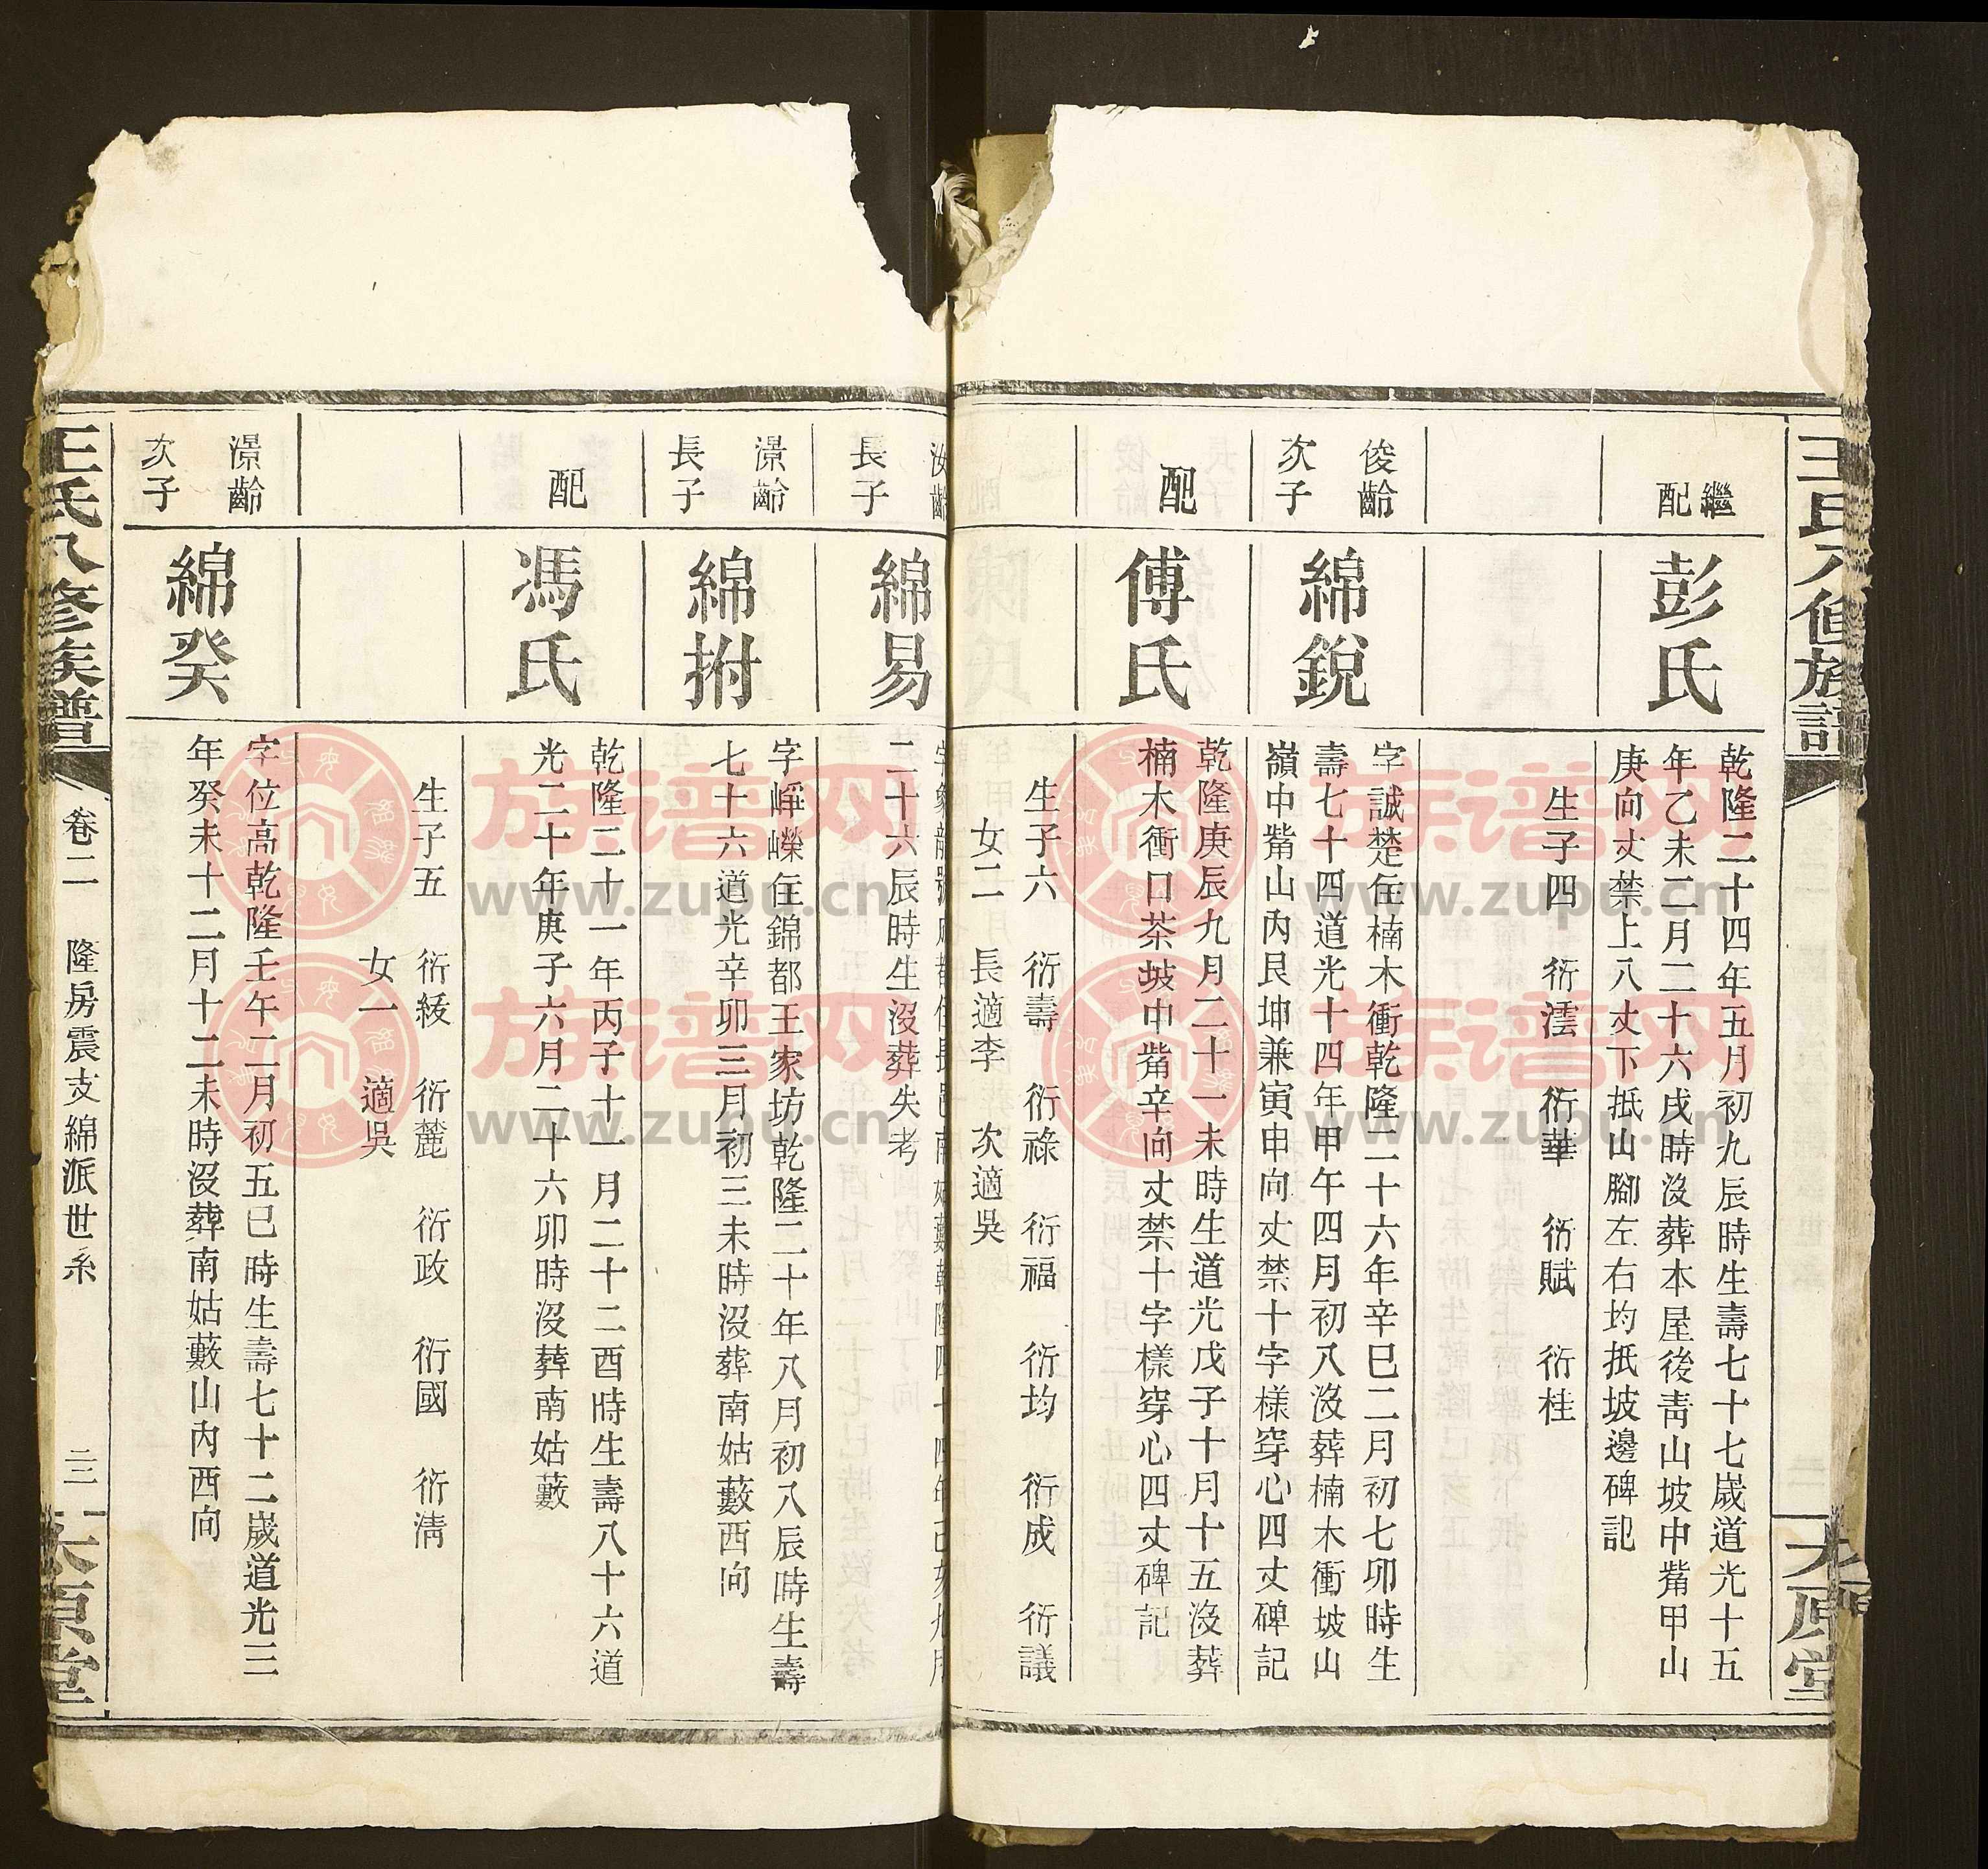 王氏八修族譜
太原堂
繼配
彭氏
乾隆二十四年五月初九辰時生壽七十七歲道光十五
年乙未二月二十六戌時沒葬本屋後靑山坡中觜甲山
庚向丈禁上八丈下抵山腳左右均抵坡邊碑記
生子四 衍澐 衍華 衍賦 衍桂
俊齡
次子
綿銳
字誠楚住楠木衝乾隆二十六年辛巳二月初七卯時生
壽七十四道光十四年甲午四月初八沒葬楠木衝坡山
嶺中觜山內艮坤兼寅申向丈禁十字樣穿心四丈碑記
配
傅氏
乾隆庚辰九月二十一未時生道光戊子十月十五沒葬
楠木衝口茶坡中觜辛向丈禁十字樣穿心四丈碑記
生子六 衍壽 衍祿 衍福 衍均 衍成 衍議
女二 長適李 次適吳
汝齡
長子
綿易
二十六辰時生沒葬失考
澋齡
長子
綿拊
字崢嶸住錦都王家坊乾隆二十年八月初八辰時生壽
七十六道光辛卯三月初三未時沒葬南姑藪西向
配
馮氏
乾隆二十一年丙子十一月二十二酉時生壽八十六道
光二十年庚子六月二十六卯時沒葬南姑藪
生子五 衍綾 衍麓 衍政 衍國 衍淸
女一 適吳
澋齡
次子
綿癸
字位高乾隆壬午二月初五巳時生壽七十二歲道光三
年癸未十二月十二未時沒葬南姑藪山內西向
王氏八修族譜
卷二 隆房震支綿派世系
二三
太原堂
族谱网
www.zupu.cn
族谱网
www.zupu.cn
族谱网
www.zupu.cn
族谱网
www.zupu.cn